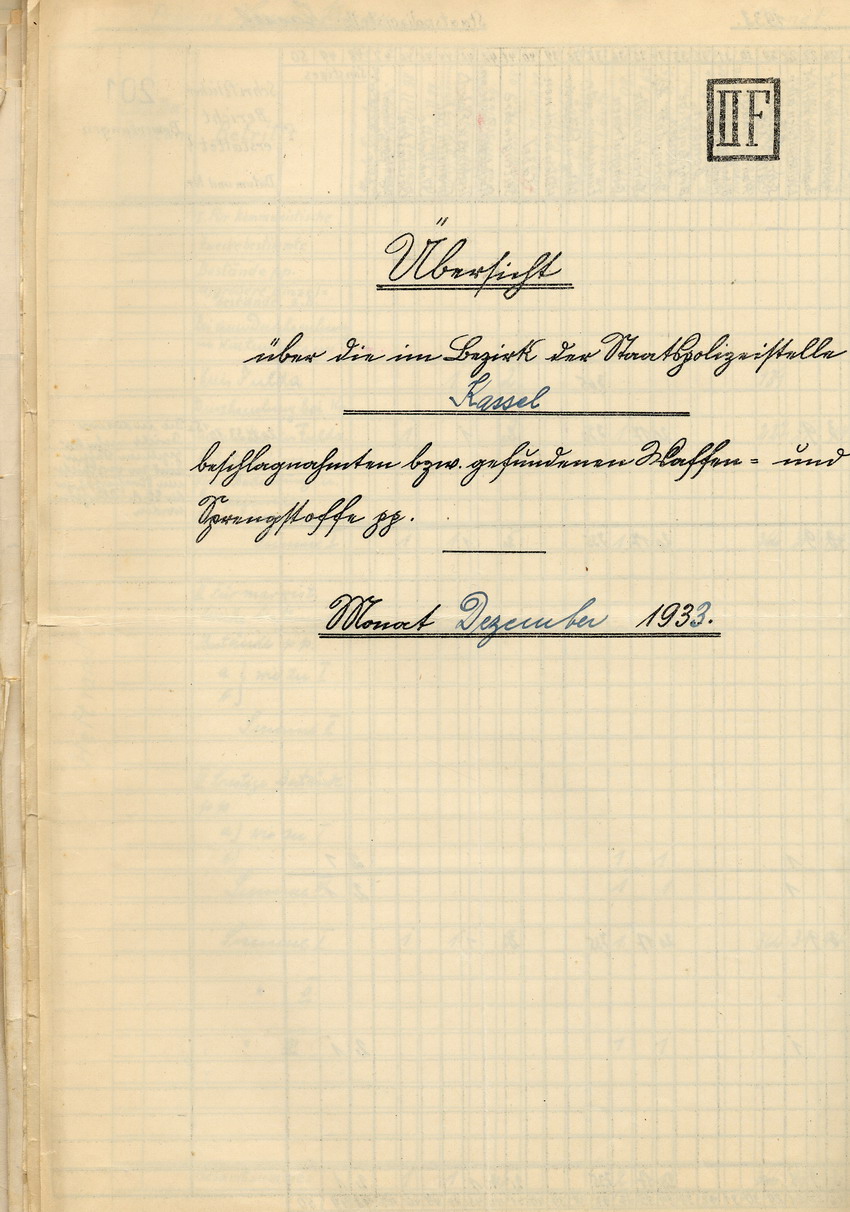 II F
Übersicht
über die im Bezirk der Staatspolizeistelle
Kassel
beschlagnahmten bzw. gefundenen Waffen= und
Sprengstoffe pp.
Monat Dezember 1933.